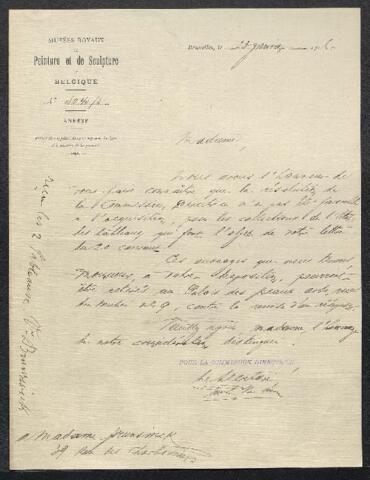 MUSÉES ROYAUX
DE
Peinture et de Sculpture
DE
BELGIQUE
ANNEXE
Bruxelles, le 23 janvier
Madame,
Nous avons l'honneur de
vous faire connaître que la résolution de
la Commission, n'a pas été favorable
à l'acquisition, pour les collections de l'État,
des tableaux qui font l'objet de votre lettre
du 20 courant.
Ces ouvrages que nous tenons
à votre disposition, peuvent
être retirés au Palais des beaux arts, rue
du Musée n° 9, contre la remise d'un récépissé.
Veuillez agréer, madame, l'hommage
de notre considération distinguée.
POUR LA COMMISSION DIRECTRICE
Le Secrétaire
reçu les 2 tableaux
Brunswick
A Madame Brunswick
39 rue des Chartreux